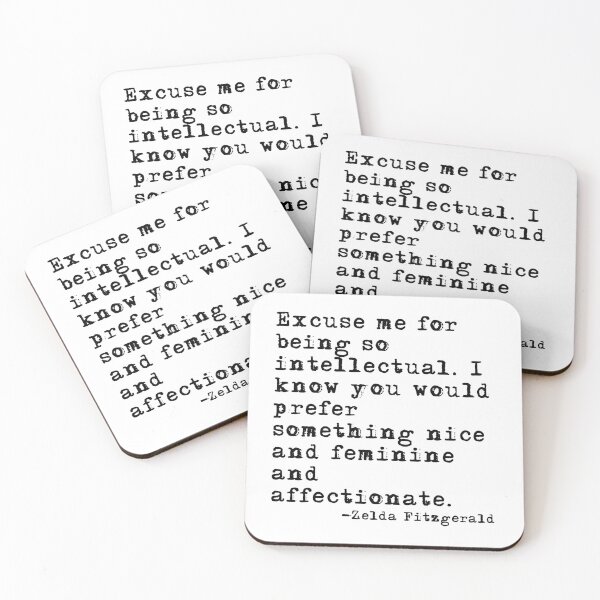 Excuse me for
being so
intellectual. I
know you would
prefer
nice
Excuse me for
being so
intellectual. I
know you would
prefer
something nice
and feminine
and
Excuse me for
being so
intellectual. I
know you would
prefer
something nice
and feminine
and
affectionate
-Zelda
Excuse me for
being so
intellectual. I
know you would
prefer
something nice
and feminine
and
affectionate.
-Zelda Fitzgerald